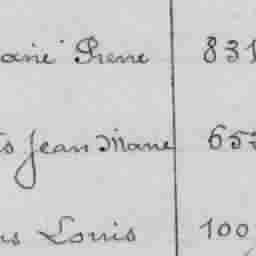 Pierre 831
Jean Marie 65
Louis 100